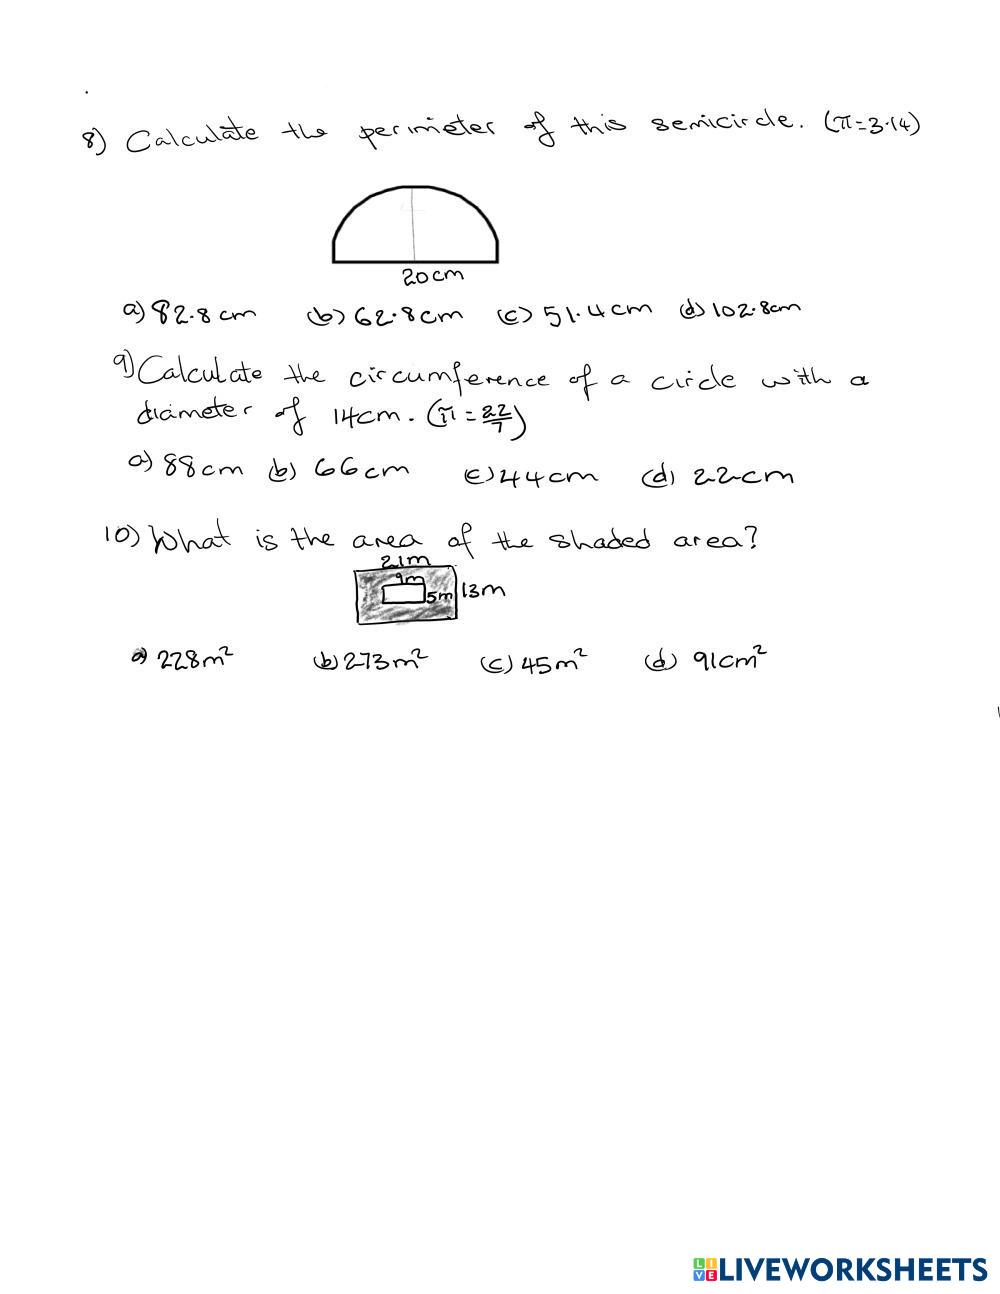 8) Calculate the perimeter of this semicircle. (π=3.14)
20cm
a) 82.8cm (b) 62.8cm (c) 51.4cm (d) 102.8cm
9) Calculate the circumference of a circle with a
diameter of 14cm. (π = 22/7)
a) 88cm (b) 66cm (c) 44cm (d) 22cm
10) What is the area of the shaded area?
21m
9m
5m 13m
a) 228m² (b) 273m² (c) 45m² (d) 91cm²
LIVE LIVEWORKSHEETS